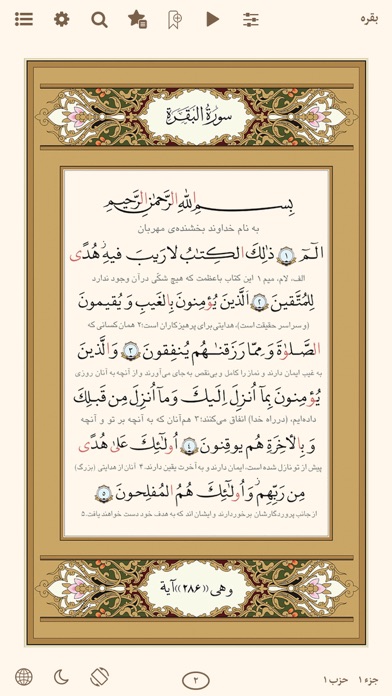 بقره
سورة البقرة
بسم الله الرحمن الرحیم
به نام خداوند بخشنده‌ی مهربان
الٓمٓ ۱ ذٰلِكَ الكِتٰبُ لا رَيبَ فيهِ هُدًى
الف، لام، میم ۱ این کتاب باعظمت که هیچ شکّی در آن وجود ندارد
لِلمُتَّقينَ ۲ اَلَّذينَ يُؤمِنونَ بِالغَيبِ وَ يُقيمونَ
(و سراسر حقیقت است)، هدایتی برای پرهیزکاران است؛۲ همان کسانی که
الصَّلوٰةَ وَ مِمّا رَزَقنٰهُم يُنفِقونَ ۳ وَ الَّذينَ
به غیب ایمان دارند و نماز را کامل و بی‌نقص به‌جای می‌آورند و از آنچه به آنان روزی
يُؤمِنونَ بِمآ اُنزِلَ اِلَيكَ وَ مآ اُنزِلَ مِن قَبلِكَ
داده‌ایم، (در راه خدا) انفاق می‌کنند؛ ۳ هم‌آنان که به آنچه بر تو و آنچه
وَ بِالآخِرَةِ هُم يوقِنونَ ۴ اُولٰئِكَ عَلىٰ هُدًى
پیش از تو نازل شده است، ایمان دارند و به آخرت یقین دارند. ۴ آنان از هدایتی (بزرگ)
مِن رَبِّهِم وَ اُولٰئِكَ هُمُ المُفلِحونَ ۵
از جانب پروردگارشان برخوردارند و ایشان‌اند که به هدف خود دست خواهند یافت. ۵
وهی ((۲۸۶)) آیة
جزء ۱ حزب ۱
۲